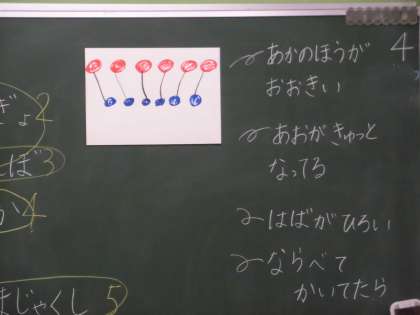 4
あかのほうが
おおきい
あおがきゅっと
なってる
はばがひろい
ならべて
かいてたら
ょ2
ぼ3
か4
まじゃくし5